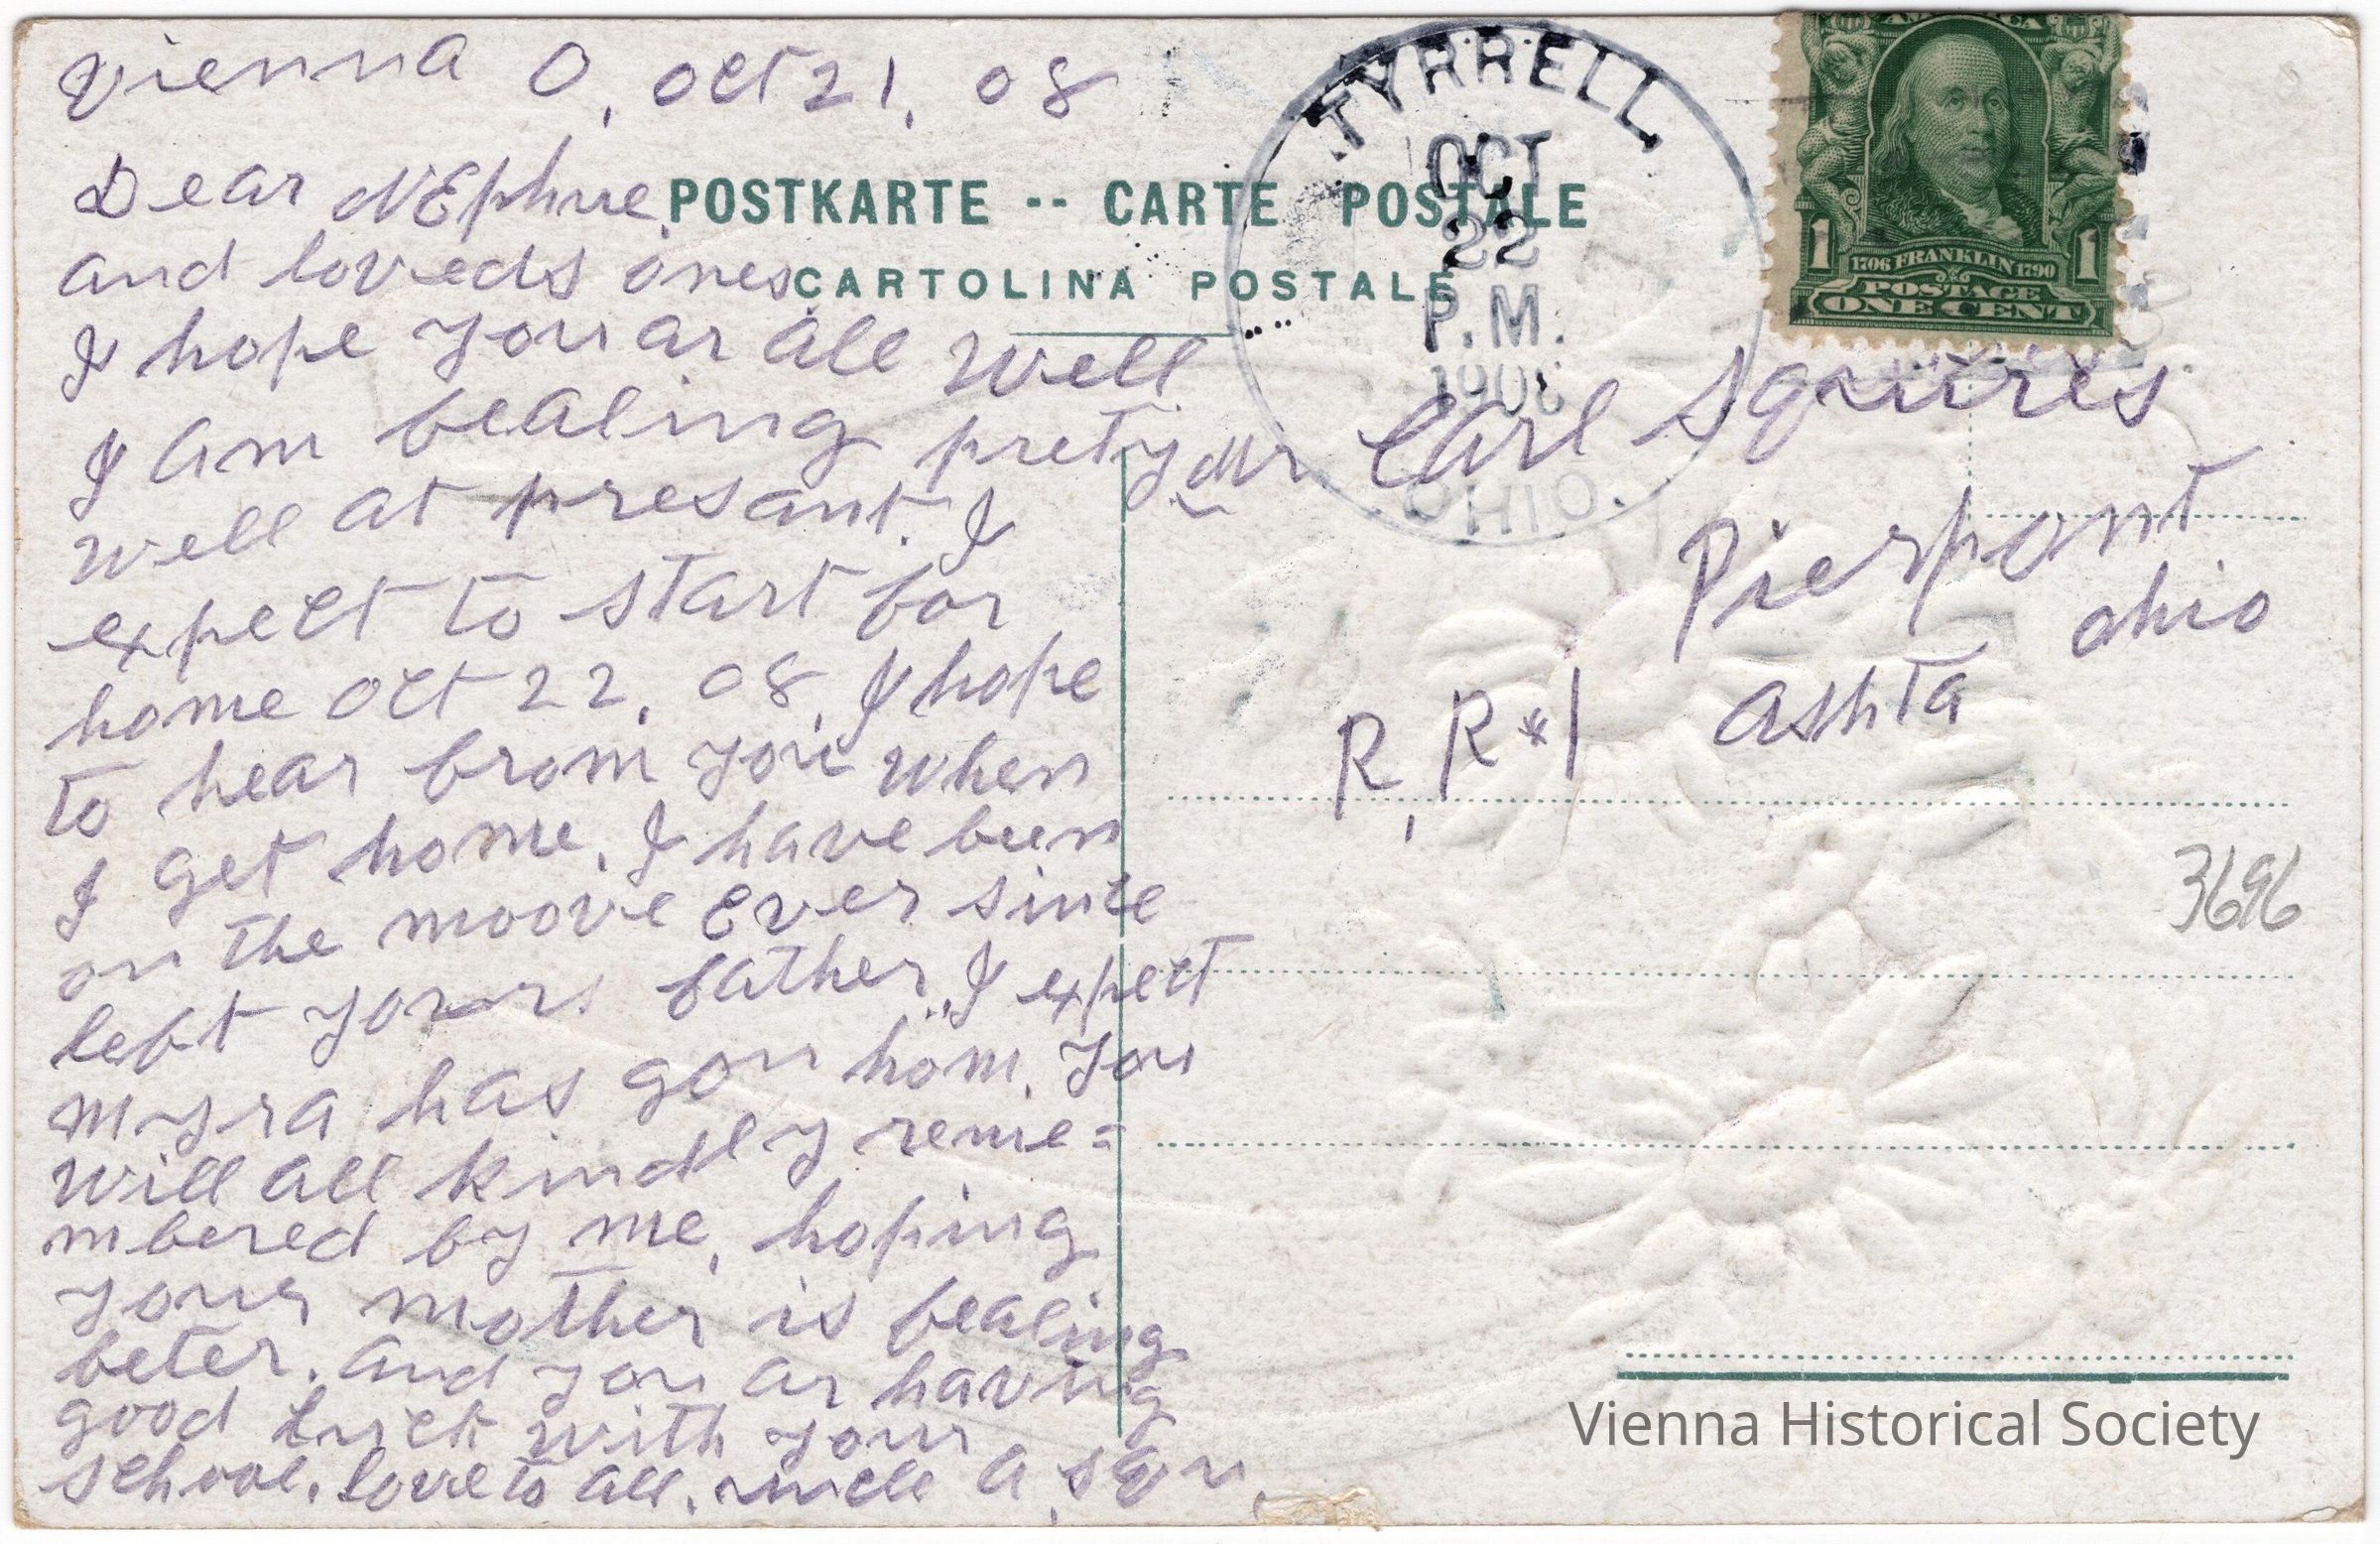 Vienna O, Oct 21, 08
Dear NEphue
and loveds ones
I hope you ar all Well
I am fealing prety
well at presant. I
expect to start for
home Oct 22, 08, I hope
to hear from you when
I get home, I have been
on the moove Ever since
left yours father, I expect
myra has gon hom, you
will all kindly reme=
mbered by me, hoping
your mother is fealing
beter. and you ar having
good luck with your
school. love to all. uncle A, Squ,
POSTKARTE -- CARTE POSTALE
CARTOLINA POSTALE
TYRRELL
OCT
22
P.M.
1908
OHIO.
AMERICA
1 1
1706 FRANKLIN 1790
POSTAGE
ONE CENT
Mr Carl Squires
Pierpont
ohio
R, R #1 Ashta
3696
Vienna Historical Society